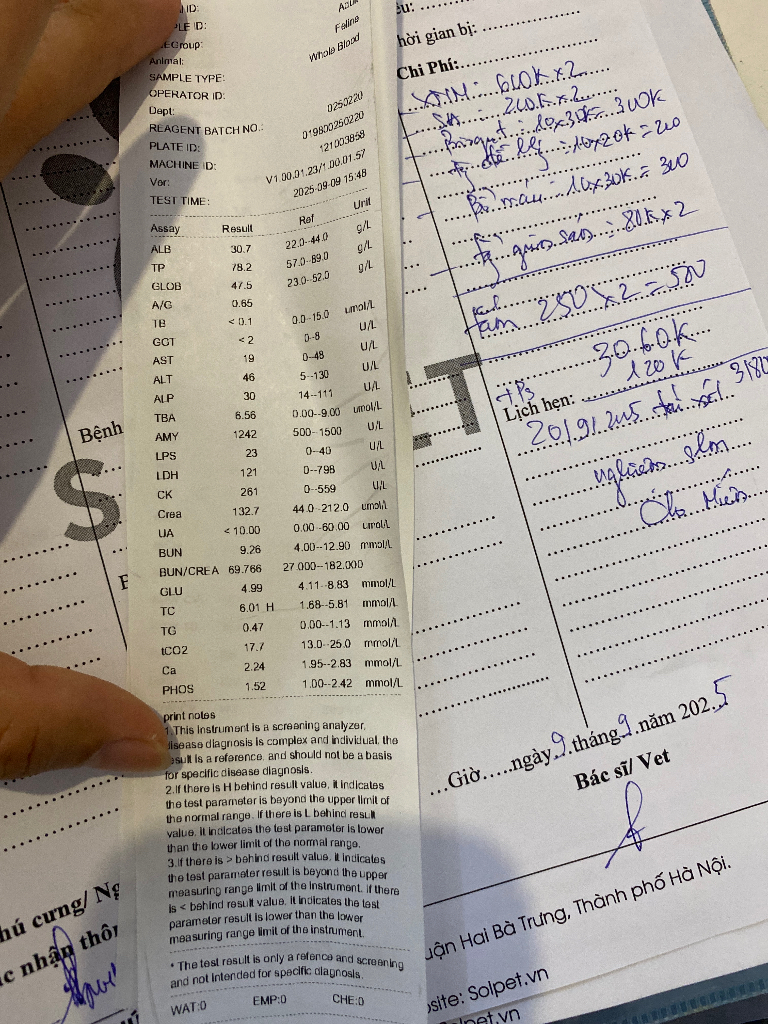 ID:
ID:
Group:
Feline
Animal:
Whole Blood
SAMPLE TYPE:
OPERATOR ID:
Dept:
0250220
REAGENT BATCH NO.:
019800250220
PLATE ID:
121003858
MACHINE ID:
V1.00.01.23/1.00.01.57
Ver:
2025-09-09 15:48
TEST TIME:
Assay Result Ref Unit
ALB 30.7 22.0--44.0 g/L
TP 78.2 57.0--89.0 g/L
GLOB 47.5 23.0--52.0 g/L
A/G 0.65
TB < 0.1 0.0--15.0 umol/L
GGT < 2 0--8 U/L
AST 19 0--48 U/L
ALT 46 5--130 U/L
ALP 30 14--111 U/L
TBA 6.56 0.00--9.00 umol/L
AMY 1242 500--1500 U/L
LPS 23 0--40 U/L
LDH 121 0--798 U/L
CK 261 0--559 U/L
Crea 132.7 44.0--212.0 umol/L
UA < 10.00 0.00--60.00 umol/L
BUN 9.26 4.00--12.90 mmol/L
BUN/CREA 69.766 27.000--182.000
GLU 4.99 4.11--8.83 mmol/L
TC 6.01 H 1.68--5.81 mmol/L
TG 0.47 0.00--1.13 mmol/L
tCO2 17.7 13.0--25.0 mmol/L
Ca 2.24 1.95--2.83 mmol/L
PHOS 1.52 1.00--2.42 mmol/L
print notes
1.This Instrument is a screening analyzer,
disease diagnosis is complex and individual, the
result is a reference, and should not be a basis
for specific disease diagnosis.
2.If there is H behind result value, it indicates
the test parameter is beyond the upper limit of
the normal range. If there is L behind result
value, it indicates the test parameter is lower
than the lower limit of the normal range.
3.If there is > behind result value, it indicates
the test parameter result is beyond the upper
measuring range limit of the instrument. If there
is < behind result value, it indicates the test
parameter result is lower than the lower
measuring range limit of the instrument.
* The test result is only a refence and screening
and not intended for specific diagnosis.
WAT:0 EMP:0 CHE:0
hời gian bị:
Chi Phí:
XNM: 610K x 2
SA: 210K x 2
10x30K = 300K
10x20K = 200
máu: 10x30K = 300
80K x 2
250 x 2 = 500
30.60K
120K
Lịch hẹn:
20/9/2025 tái xét
nghiệm
Giờ.....ngày 9 tháng 9 năm 2025
Bác sĩ/ Vet
Bệnh
uận Hai Bà Trưng, Thành phố Hà Nội.
site: Solpet.vn
hú cưng/ Ng
c nhận thôn